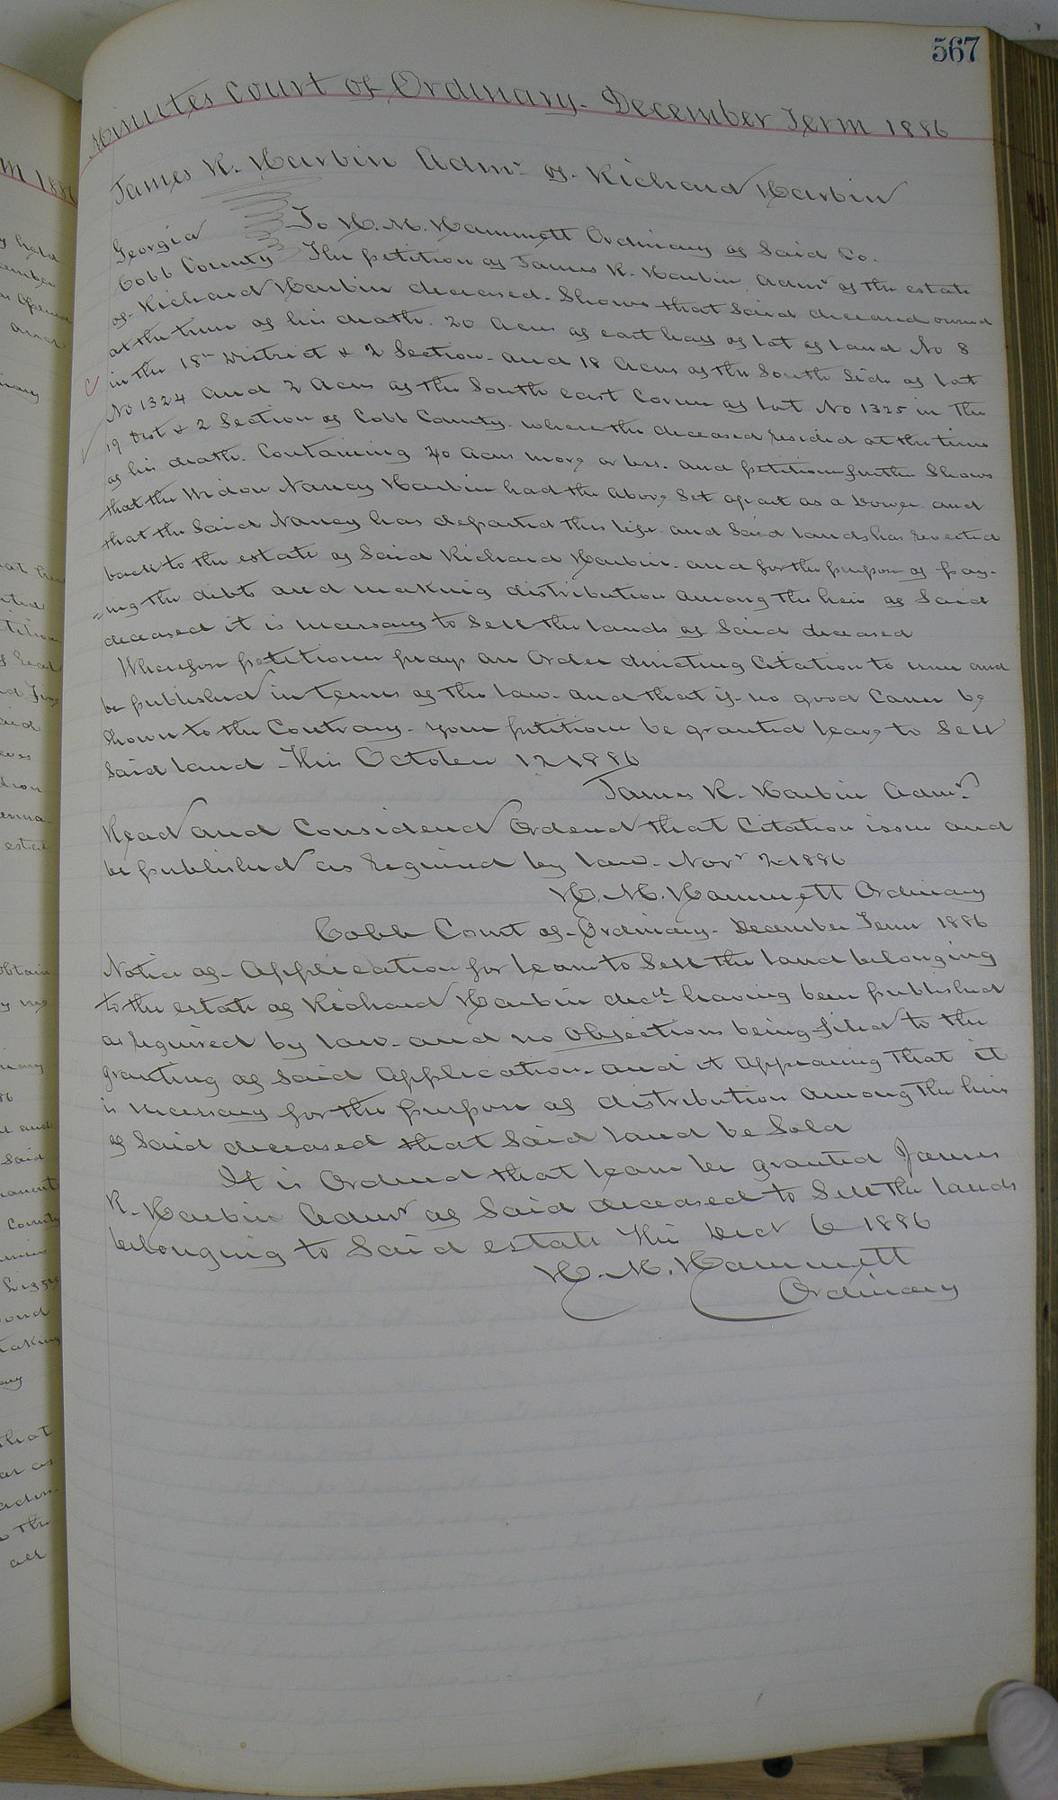 567
Minutes Court of Ordinary - December Term 1886
James R. Harbin Admr of Richard Harbin
Georgia To H. M. Hammett Ordinary of Said Co.
Cobb County The petition of James R. Harbin Admr of the estate
of Richard Harbin deceased. Shows that Said deceased owned
at the time of his death. 20 Acres of east half of Lot of Land No 8
in the 18th District & 2 Section. and 18 Acres of the South Side of Lot
No 1324 and 2 Acres of the South east Corner of Lot No 1325 in the
19 Dist & 2 Section of Cobb County. where the deceased resided at the time
of his death. Containing 40 Acres more or less. and petitioner further Shows
that the Widow Nancy Harbin had the above Set apart as a Dower and
that the Said Nancy has departed this life and Said Lands has reverted
back to the estate of Said Richard Harbin. and for the purpose of pay-
=ing the debts and making distribution among the heirs of Said
deceased it is necessary to Sell the Lands of Said deceased
Wherefore petitioner prays an Order directing Citation to issue and
be published in terms of the Law. and that if no good Cause be
Shown to the Contrary. your petitioner be granted leave to Sell
Said Land This October 12 1886
James R. Harbin Admr
Read and Considered Ordered that Citation issue and
be published as required by Law. Novr 2 1886
H. M. Hammett Ordinary
Cobb Court of Ordinary. December Term 1886
Notice of Application for Leave to Sell the Land belonging
to the estate of Richard Harbin decd having been published
as required by Law. and no Objections being filed to the
granting of Said Application. and it Appearing That it
is necessary for the purpose of distribution among the heirs
of Said deceased that Said Land be Sold
It is Ordered that Leave be granted James
R. Harbin Admr of Said deceased to Sell the Lands
belonging to Said estate This Decr 6 1886
H. M. Hammett
Ordinary